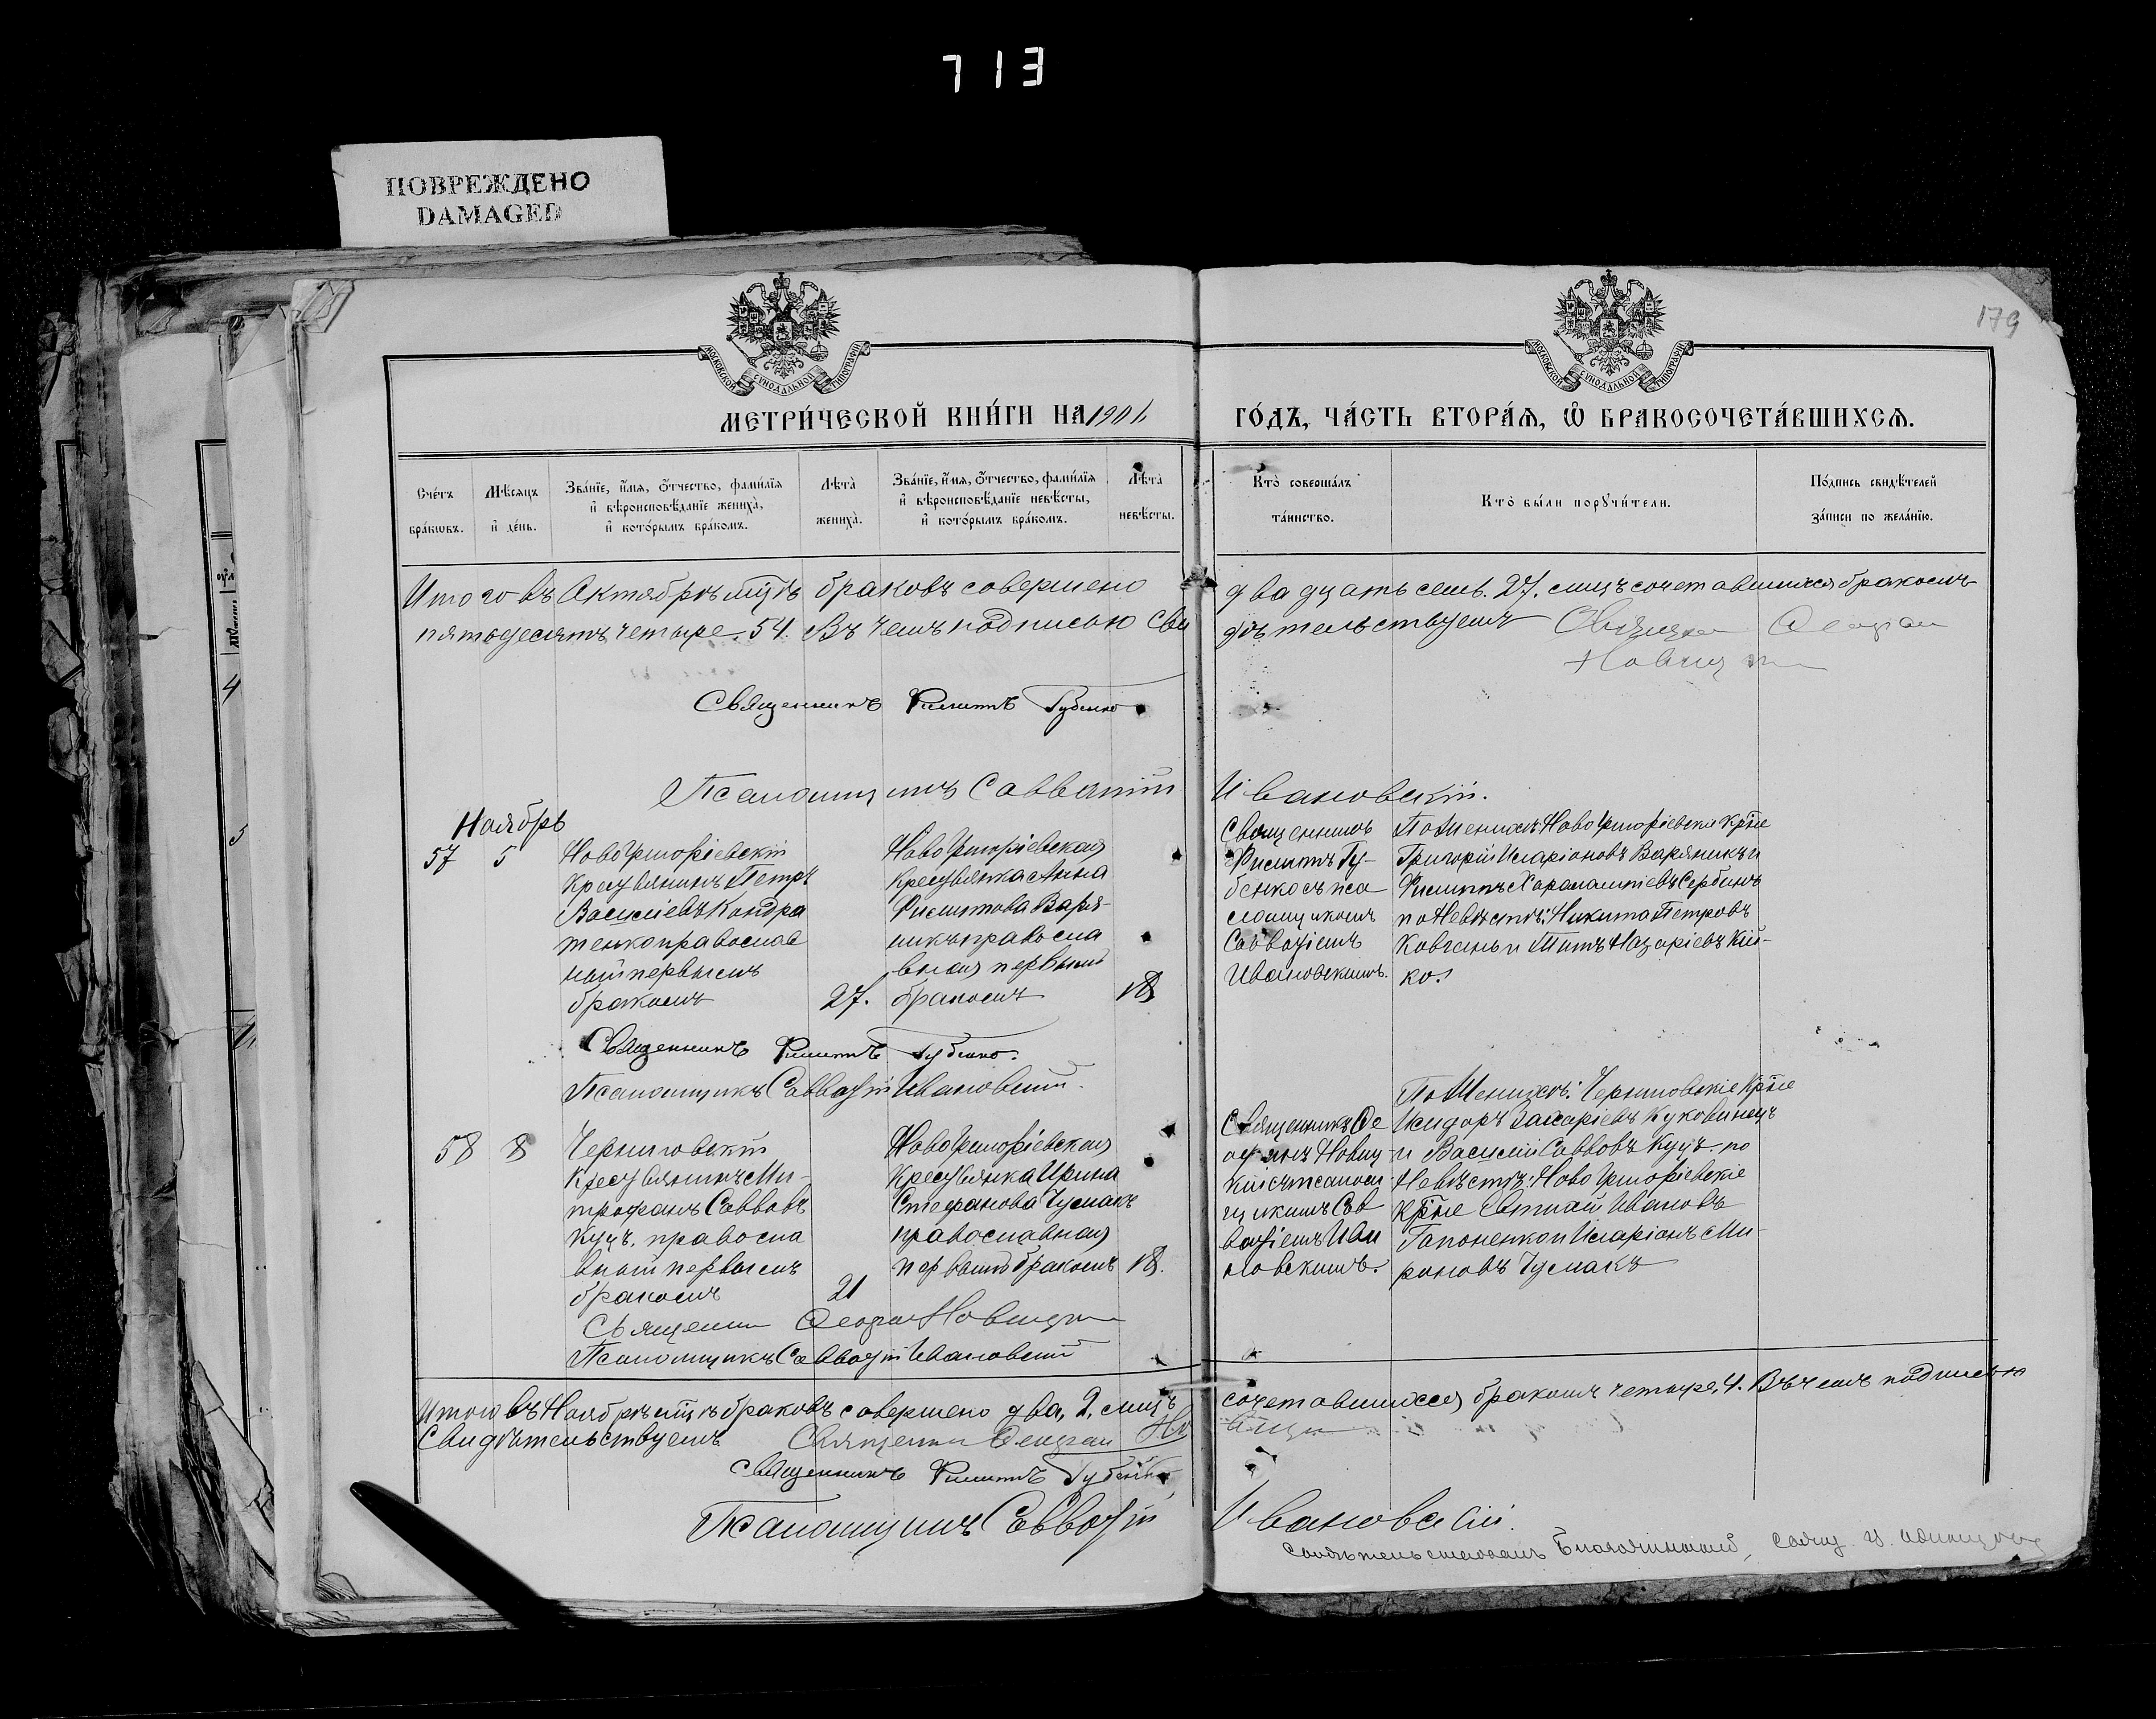 713
ПОВРЕЖДЕНО
DAMAGED
179
МОСКОВСКОЙ СѴНОДАЛЬНОЙ ТИПОГРАФІИ
МОСКОВСКОЙ СѴНОДАЛЬНОЙ ТИПОГРАФІИ
МЕТРИ́ЧЕСКОЙ КНИ́ГИ НА 1901 ГО́ДЪ, ЧА́СТЬ ВТОРА́Ѧ, Ѽ БРАКОСОЧЕТА́ВШИХСѦ.
Сче́тъ бра́кѡвъ.
Мѣ́сѧцъ и҆ де́нь.
Зва́нїе, и҆́мѧ, ѻ҆́тчество, фами́лїѧ и҆ вѣроисповѣ́данїе жениха̀, и҆ кото́рымъ бра́комъ.
Лѣта̀ жениха̀.
Зва́нїе, и҆́мѧ, ѻ҆́тчество, фами́лїѧ и҆ вѣроисповѣ́данїе невѣ́сты, и҆ кото́рымъ бра́комъ.
Лѣта̀ невѣ́сты.
Кто̀ соверша́лъ та́инство.
Кто̀ бы́ли порꙋчи́тели.
По́дпись свидѣ́телей за́писи по жела́нїю.
Итого въ Октябрѣ м҃цѣ браковъ совершено двадцать семь. 27. лицъ сочетавшихся бракомъ
пятьдесятъ четыре. 54. Въ чемъ подписью свидѣтельствуемъ
Священникъ Филиппъ Губенко
Псаломщикъ Савватій Ивановскій.
Ноябрь
57 5
Новогригоріевскій
крестьянинъ Петръ
Василіевъ Кондра
тенко православ
ный первымъ
бракомъ
27.
Новогригоріевская
крестьянка Анна
Филиппова Варя-
никъ православ
ная первымъ
бракомъ
18
Священникъ
Филиппъ Гу-
бенко съ пса
ломщикомъ
Савватіемъ
Ивановскимъ.
По женихѣ: Новогригоріевскіе кр҃не
Григорій Иларіоновъ Варяникъ и
Филиппъ Харалампіевъ Сербинъ
по невѣстѣ: Никита Петровъ
Ковганъ и Титъ Назаріевъ Кій-
ко.
Священникъ Филиппъ Губенко.
Псаломщикъ Савватій Ивановскій.
58 8
Черниговскій
крестьянинъ Ми-
трофанъ Саввовъ
Куцъ, правосла
вный первымъ
бракомъ
21
Новогригоріевская
крестьянка Ирина
Стефанова Чумакъ
православная
первымъ бракомъ
18.
Священникъ Ѳе
Новиц
кій съ псалом
щикомъ Сав
ватіемъ Ива
новскимъ.
По женихѣ: Черниговскіе кр҃не
Исидоръ Захаріевъ Куковинецъ
и Василій Саввовъ Куцъ. по
невѣстѣ: Новогригоріевскіе
кр҃не Евтихій Ивановъ
Гапоненко и Иларіонъ Ми-
роновъ Чумакъ
Священни Новицкій
Псаломщикъ Савватій Ивановскій
Итого въ Ноябрѣ м҃цѣ браковъ совершено два, 2, лицъ сочетавшихся бракомъ четыре, 4. Въ чемъ подписью
свидѣтельствуемъ Священни
Священникъ Филиппъ Губенко
Псаломщикъ Савватій Ивановскій.
Благочинный, свящ.